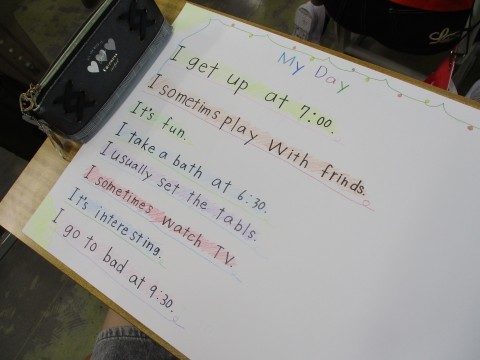 My Day
I get up at 7:00.
I sometims play With frinds.
It's fun.
I take a bath at 6:30.
I usually set the tabls.
I sometimes watch TV.
It's interesting.
I go to bad at 9:30.